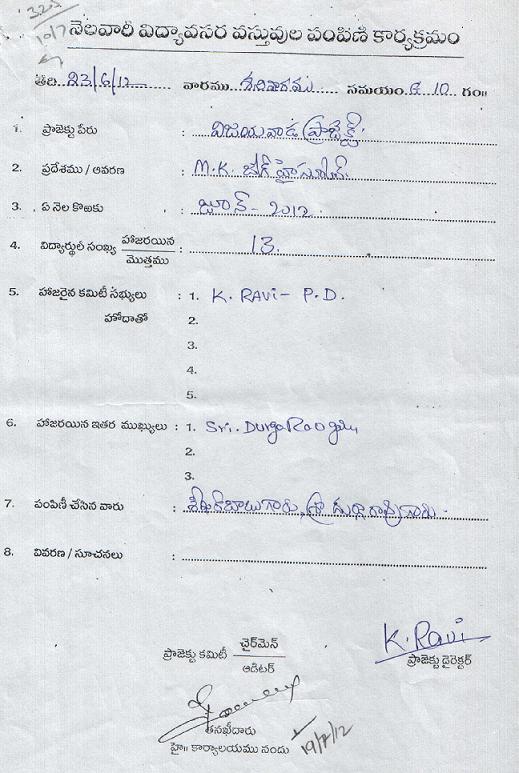 325
10/7
నెలవారీ విద్యావసర వస్తువుల పంపిణీ కార్యక్రమం
తేది. 23/6/12 వారము శనివారము సమయం. 10 గం॥
1. ప్రాజెక్టు పేరు : విజయవాడ ప్రాజెక్ట్.
2. ప్రదేశము / ఆవరణ : M.K. బేగ్ హైస్కూల్.
3. ఏ నెల కొఱకు : జూన్ - 2012.
4. విద్యార్థుల సంఖ్య హాజరయిన / మొత్తము : 13.
5. హాజరైన కమిటీ సభ్యులు : 1. K. RAVI - P.D.
హోదాతో 2.
3.
4.
5.
6. హాజరయిన ఇతర ముఖ్యులు : 1. Sri. Durga Rao garu
2.
3.
7. పంపిణీ చేసిన వారు : గారు, శ్రీ దుర్గారావు గారు.
8. వివరణ / సూచనలు :
ప్రాజెక్టు కమిటీ ఛైర్‌మెన్ / ఆడిటర్
K. Ravi
ప్రాజెక్టు డైరెక్టర్
తనఖీదారు
హై॥ కార్యాలయము నందు 19/7/12